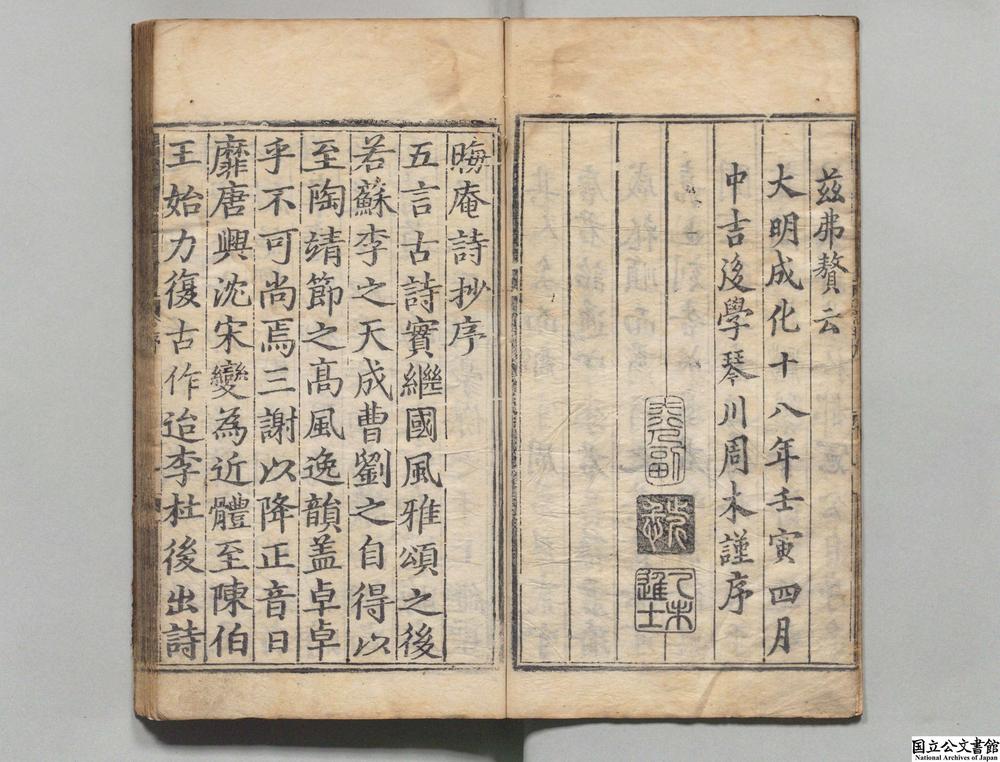 茲弗贅云
大明成化十八年壬寅四月
中吉後學琴川周木謹序
乙未
進士
晦庵詩抄序
五言古詩實繼國風雅頌之後
若蘇李之天成曹劉之自得以
至陶靖節之高風逸韻盖卓卓
乎不可尚焉三謝以降正音日
靡唐興沈宋變為近體至陳伯
王始力復古作迨李杜後出詩
国立公文書館
National Archives of Japan